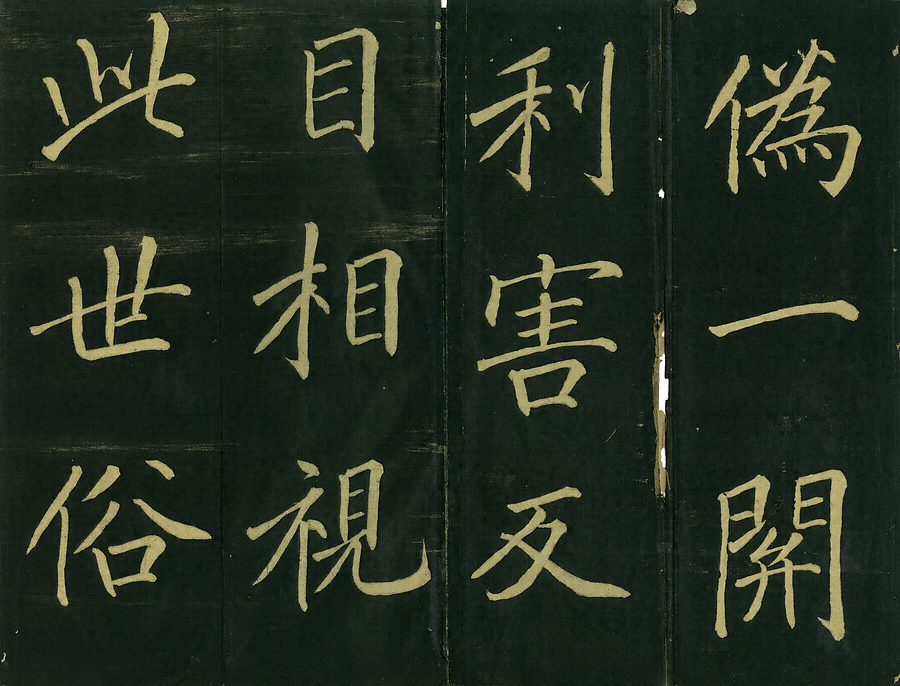 偽一開
利害反
目相視
此世俗